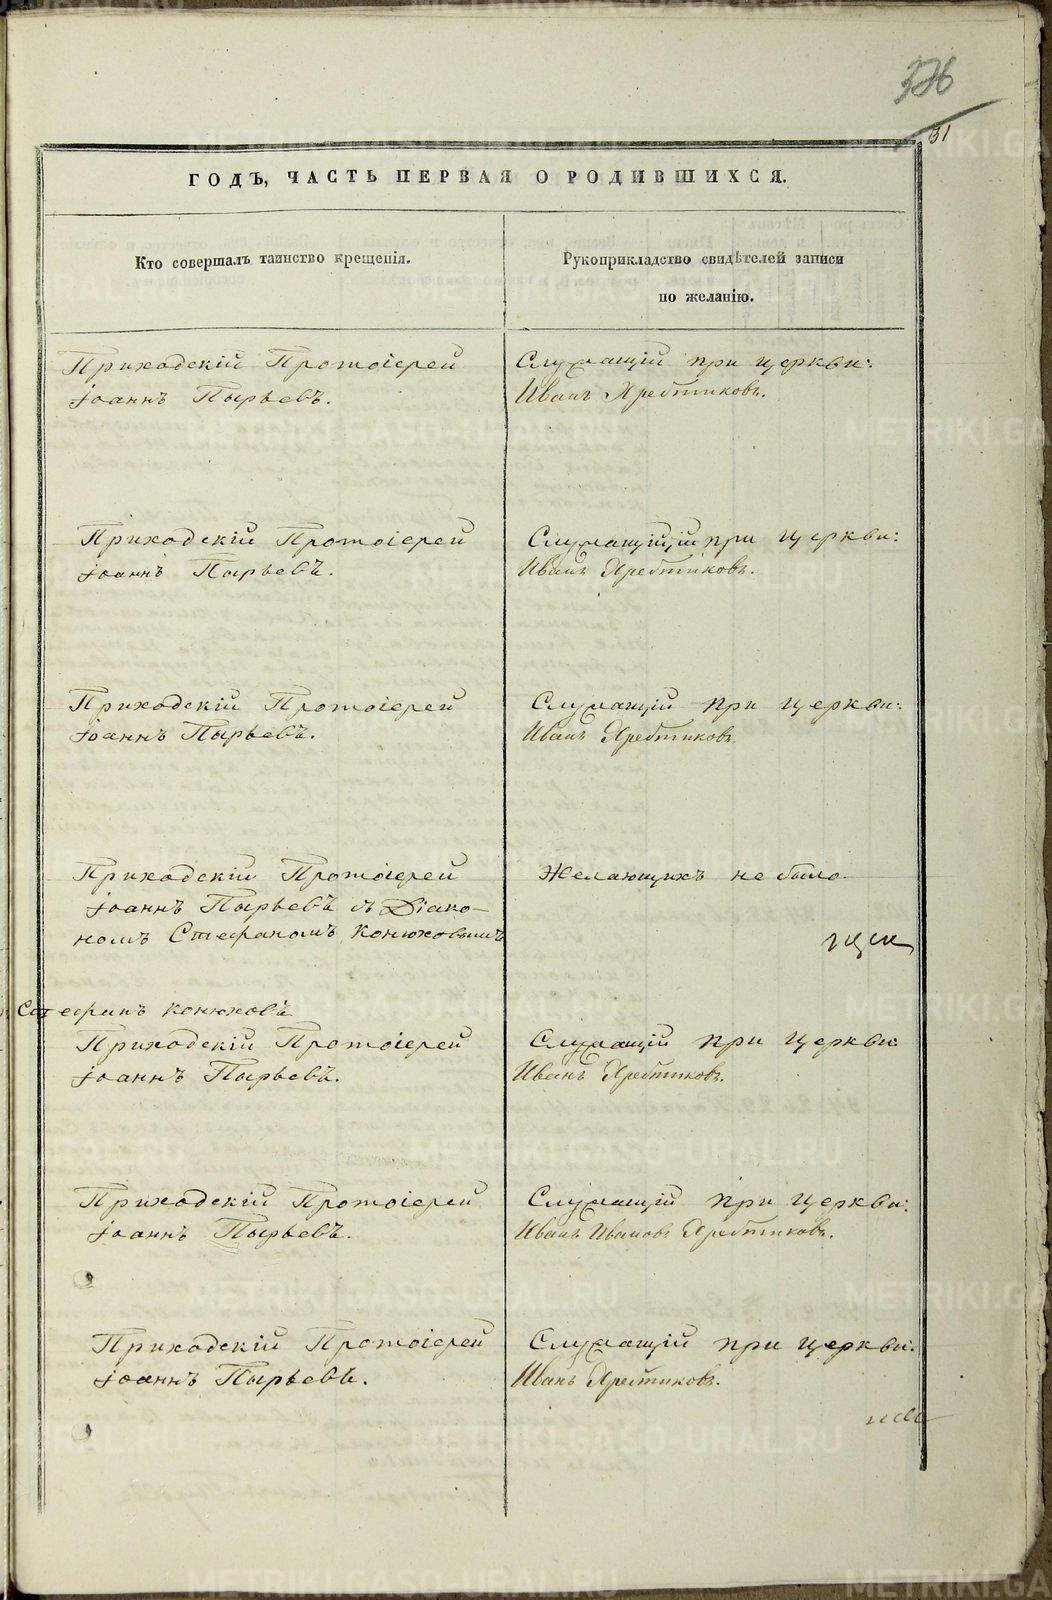 376
31
ГОДЪ, ЧАСТЬ ПЕРВАЯ О РОДИВШИХСЯ.
Кто совершалъ таинство крещенія.
Рукоприкладство свидѣтелей записи
по желанію.
Приходскій Протоіерей
Іоаннъ Пырьевъ.
Служащій при церкви:
Иванъ Ярепиковъ.
Приходскій Протоіерей
Іоаннъ Пырьевъ.
Служащій при церкви:
Иванъ
Приходскій Протоіерей
Іоаннъ Пырьевъ.
Служащій при церкви:
Иванъ
Приходскій Протоіерей
Іоаннъ Пырьевъ съ Діако-
номъ Стефаномъ Конюховымъ
Желающихъ не было.
Стефанъ Конюховъ
Приходскій Протоіерей
Іоаннъ Пырьевъ.
Служащій при церкви
Иванъ
Приходскій Протоіерей
Іоаннъ Пырьевъ.
Служащій при церкви:
Иванъ Ивановъ
Приходскій Протоіерей
Іоаннъ Пырьевъ.
Служащій при церкви:
Иванъ
METRIKI.GASO-URAL.RU